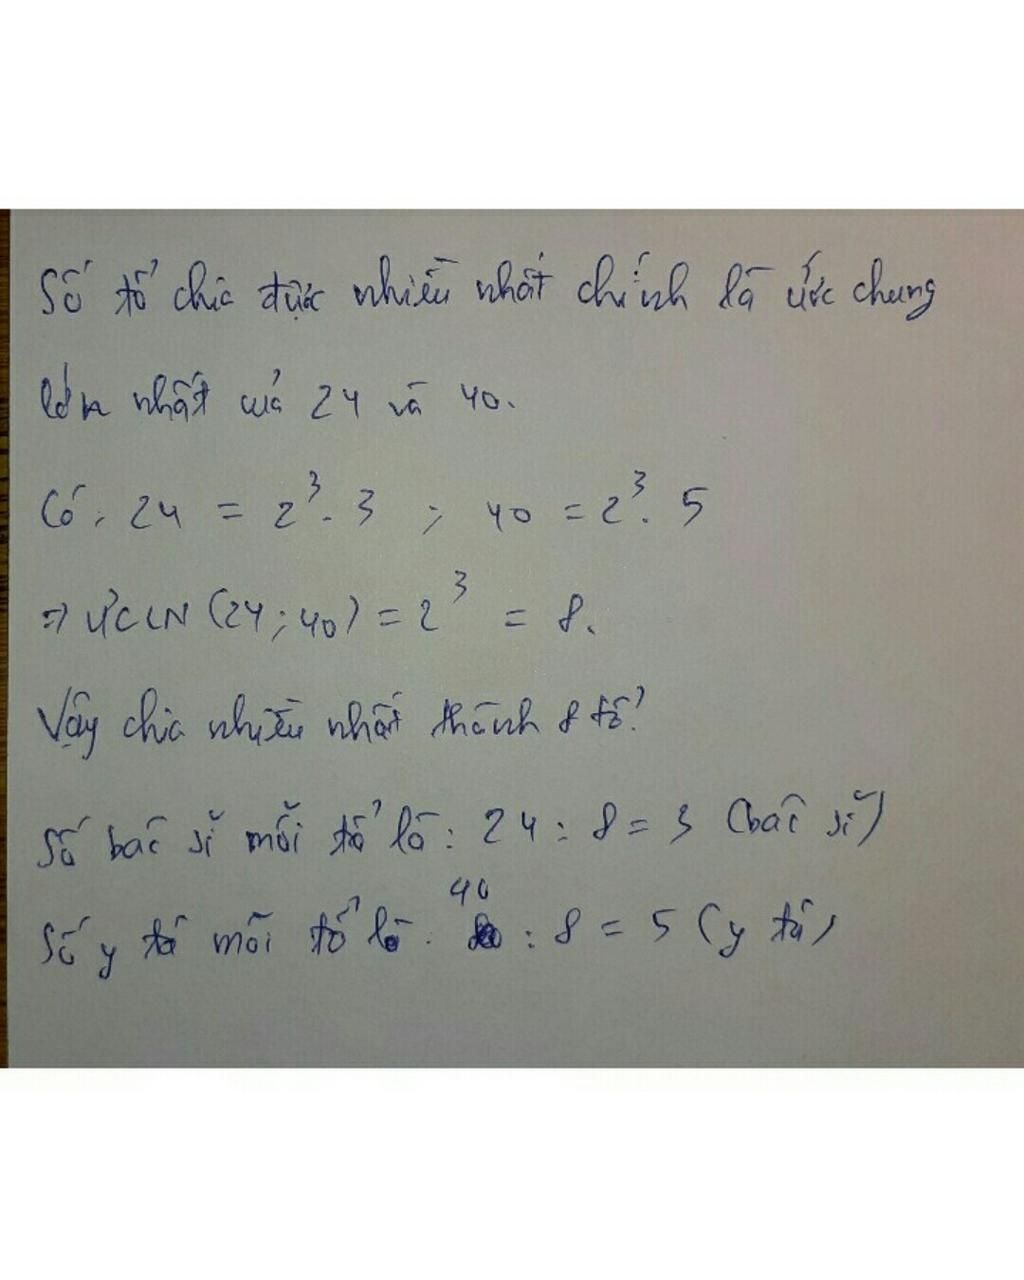 Số tổ chia được nhiều nhất chính là ước chung
lớn nhất của 24 và 40.
Có: 24 = 2³. 3 ; 40 = 2³. 5
=> ƯCLN (24; 40) = 2³ = 8.
Vậy chia nhiều nhất thành 8 tổ.
Số bác sĩ mỗi tổ là: 24 : 8 = 3 (bác sĩ)
Số y tá mỗi tổ là: 40 : 8 = 5 (y tá)